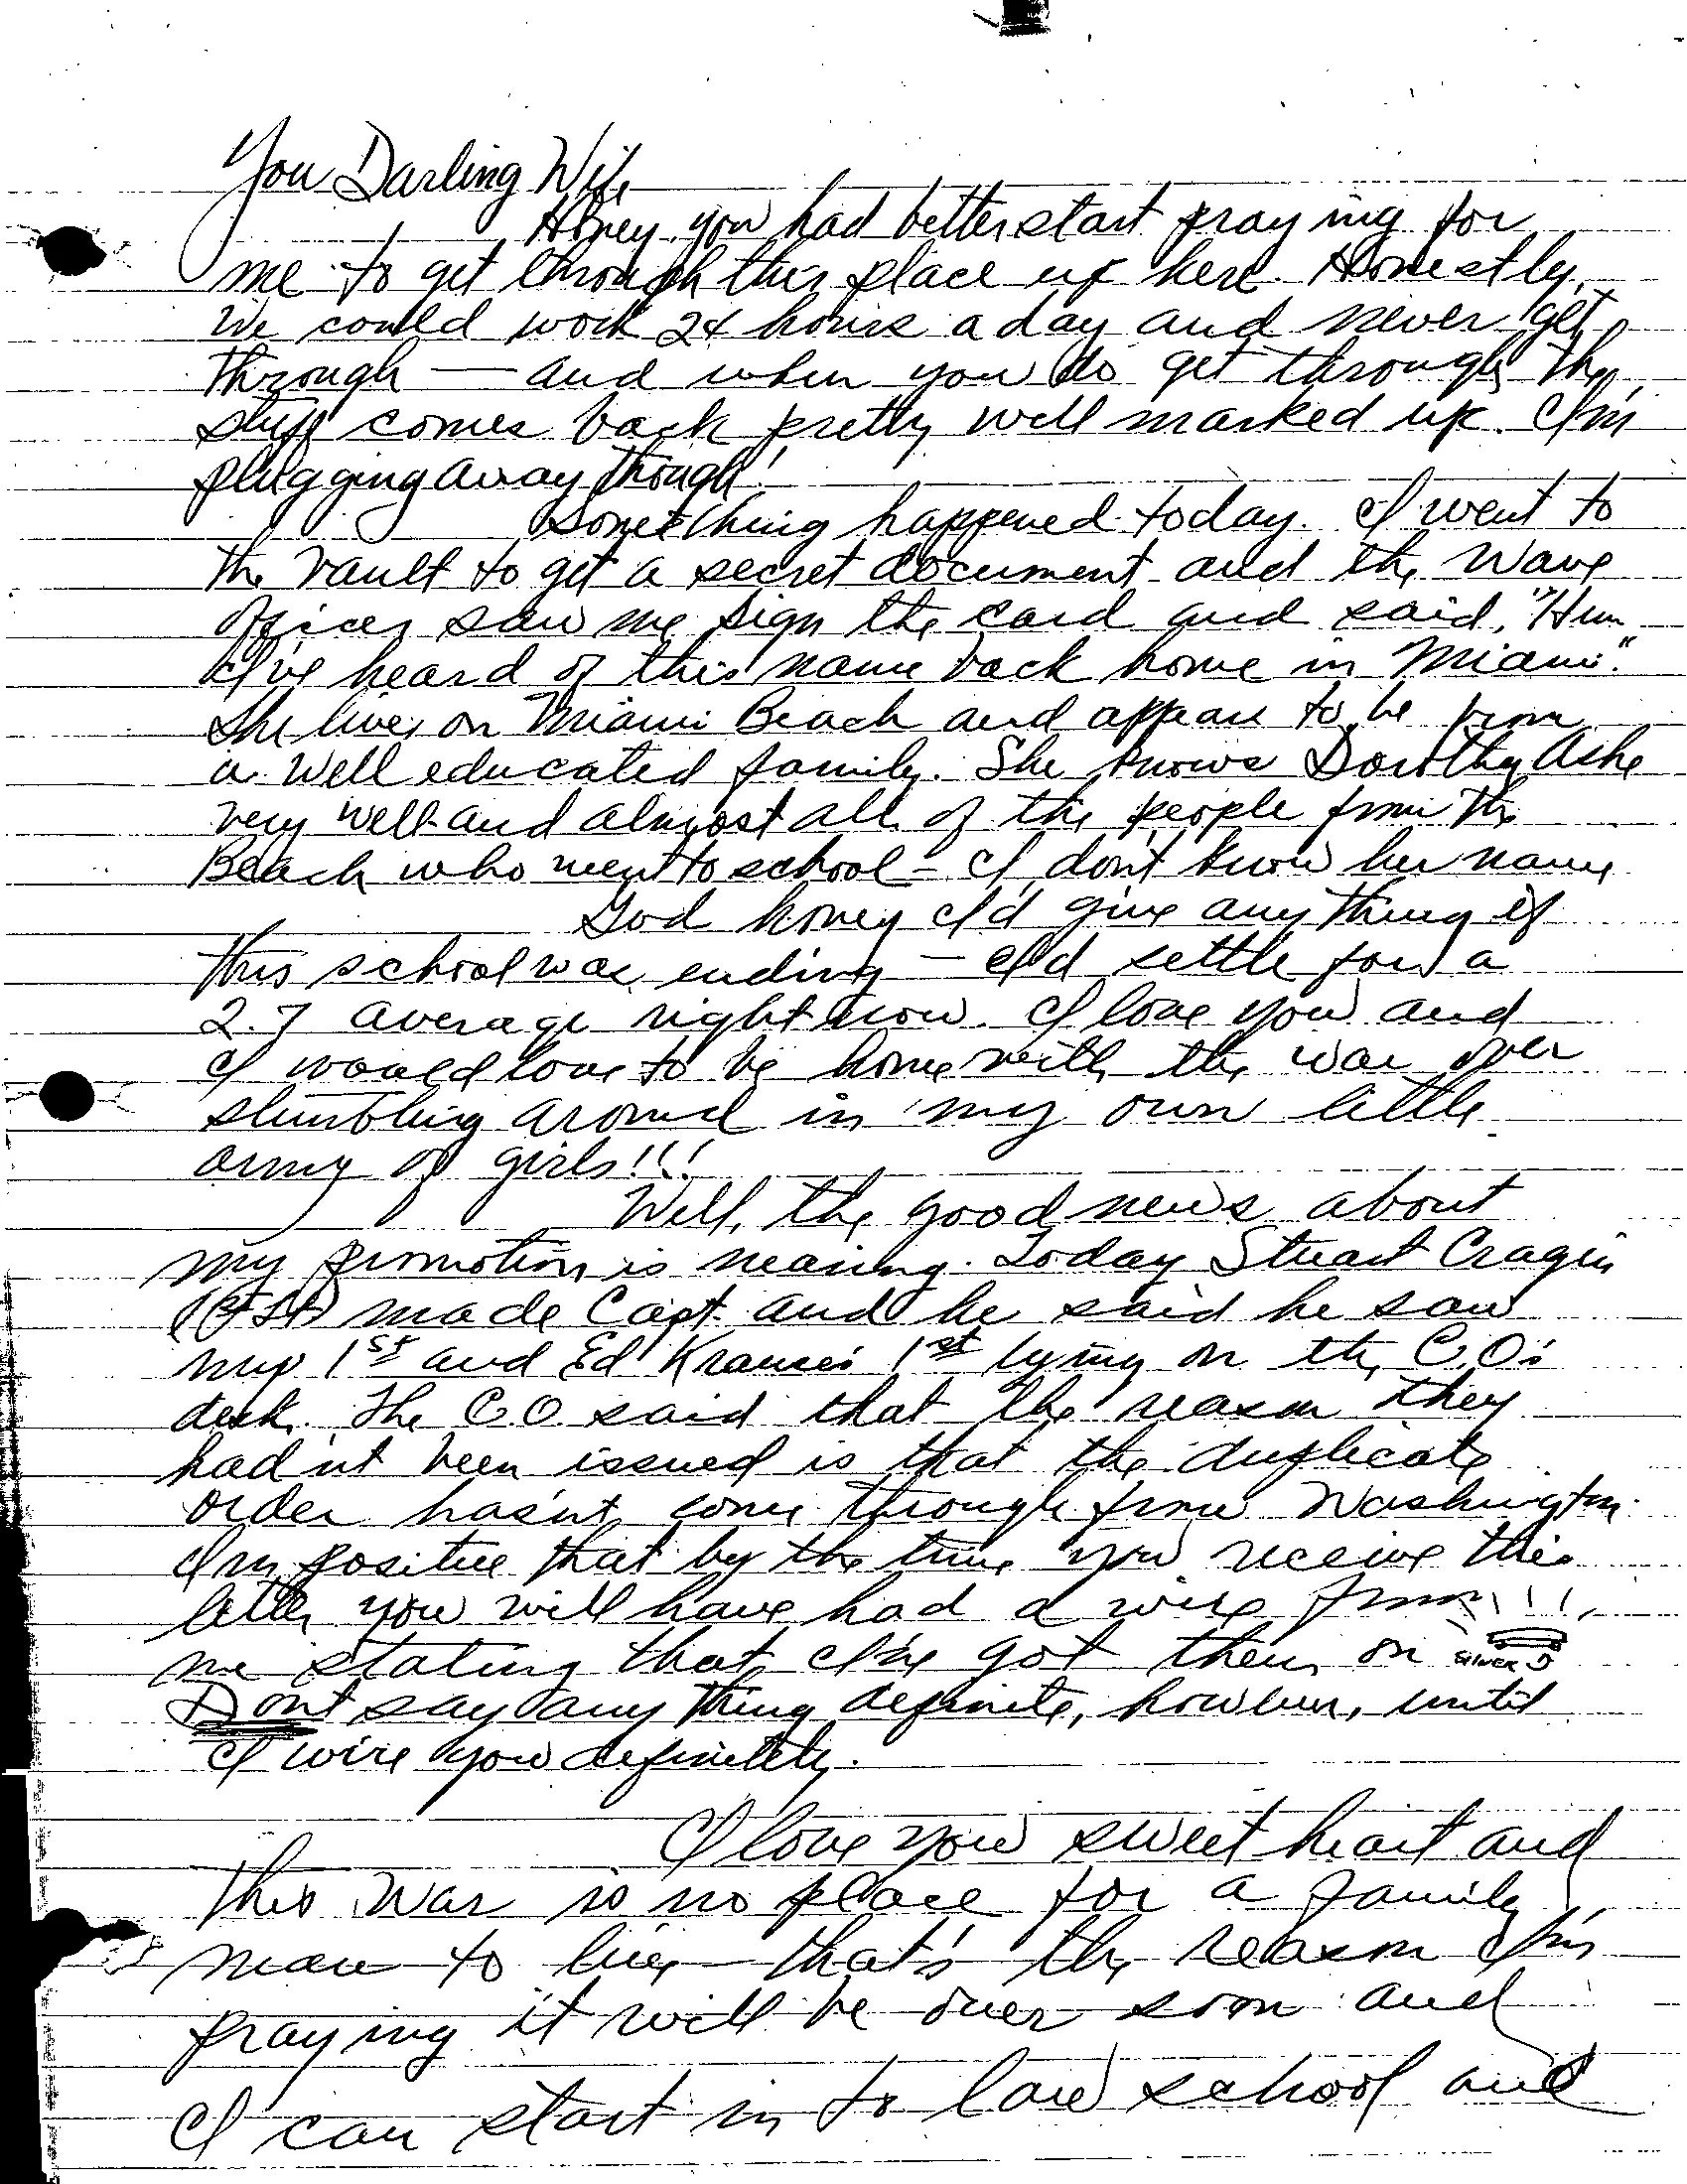 You Darling Wife
Honey you had better start praying for
me to get through this place up here. Honestly,
we could work 24 hours a day and never get
through — and when you do get through the
stuff comes back pretty well marked up. I'm
plugging away though!
Something happened today. I went to
the vault to get a secret document and the Wave
officer saw me sign the card and said, "Hum
I've heard of this name back home in Miami."
She lives on Miami Beach and appears to be from
a well educated family. She knows Dorothy Ashe
very well and almost all of the people from the
Beach who went to school - I don't know her name
God honey I'd give anything if
this school was ending — I'd settle for a
2.7 average right now. I love you and
I would love to be home with the war over
stumbling around in my own little
army of girls!!!
Well, the good news about
my promotion is nearing. Today Stuart Cragin
made Capt. and he said he saw
my 1st and Ed Krause's 1st lying on the C.O.'s
desk. The CO said that the reason they
hadn't been issued is that the duplicate
order hasn't come through from Washington.
I'm positive that by the time you receive this
letter you will have had a wire from
me stating that I've got them on SILVER
Dont say any thing definite, however, until
I wire you definitely.
I love you sweetheart and
this war is no place for a family
man to live — that's the reason I'm
praying it will be over soon and
I can start in to law school and